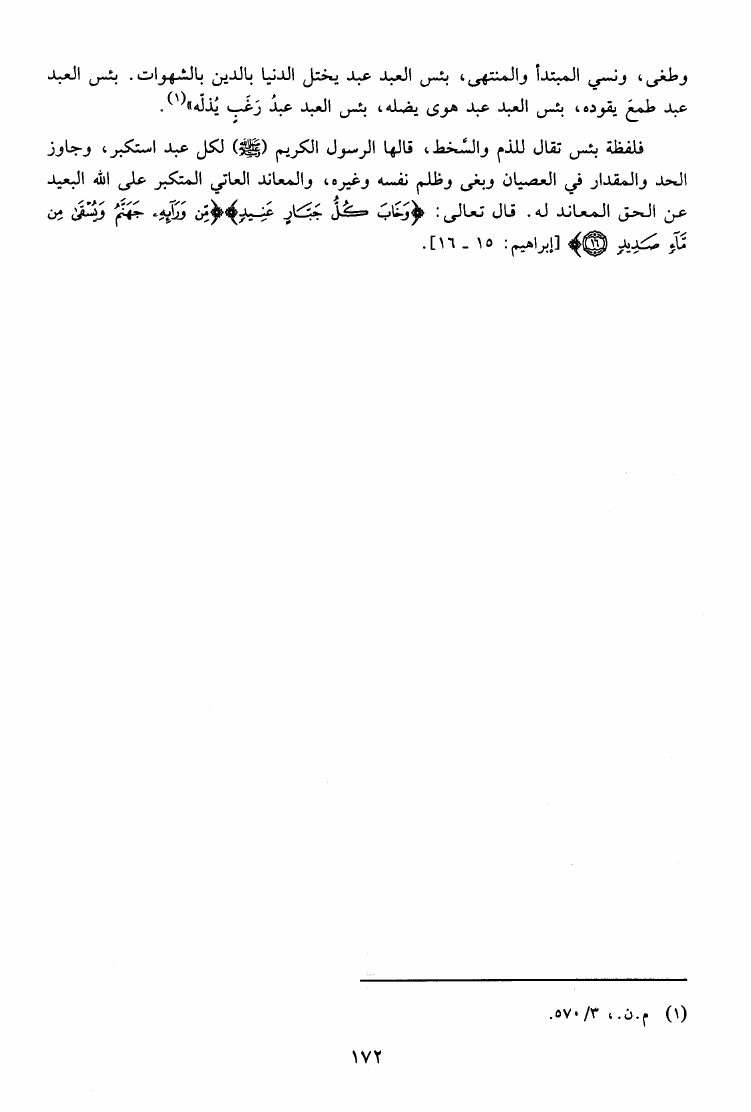 وطغى، ونسي المبتدأ والمنتهى، بئس العبد عبد يختل الدنيا بالدين بالشهوات. بئس العبد
عبد طمعَ يقوده، بئس العبد عبد هوى يضله، بئس العبد عبدُ رَغَبٍ يُذلّه»(١).
فلفظة بئس تقال للذم والسَّخط، قالها الرسول الكريم (ﷺ) لكل عبد استكبر، وجاوز
الحد والمقدار في العصيان وبغى وظلم نفسه وغيره، والمعاند العاتي المتكبر على الله البعيد
عن الحق المعاند له. قال تعالى: ﴿وَخَابَ كُلُّ جَبَّارٍ عَنِيدٍ﴾﴿مِّن وَرَآئِهِۦ جَهَنَّمُ وَيُسْقَىٰ مِن
مَّآءٍ صَدِيدٍ ١٦﴾ [إبراهيم: ١٥ ـ ١٦].
(١) م.ن.، ٥٧٠/٣.
١٧٢